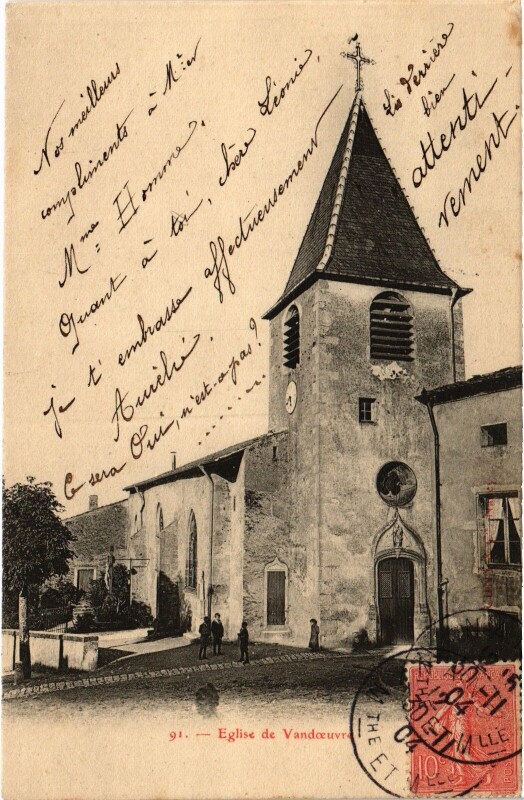 Nos meilleurs
compliments à Mr et
Mme Homme,
Quant à toi, chère Léonie,
je t'embrasse affectueusement
Aurélie.
Ce sera Oui, n'est-a pas?
Lis derrière
bien
attenti-
vement.
91. — Eglise de Vandœuvre
30-11
04
MTHE ET MLLE
10